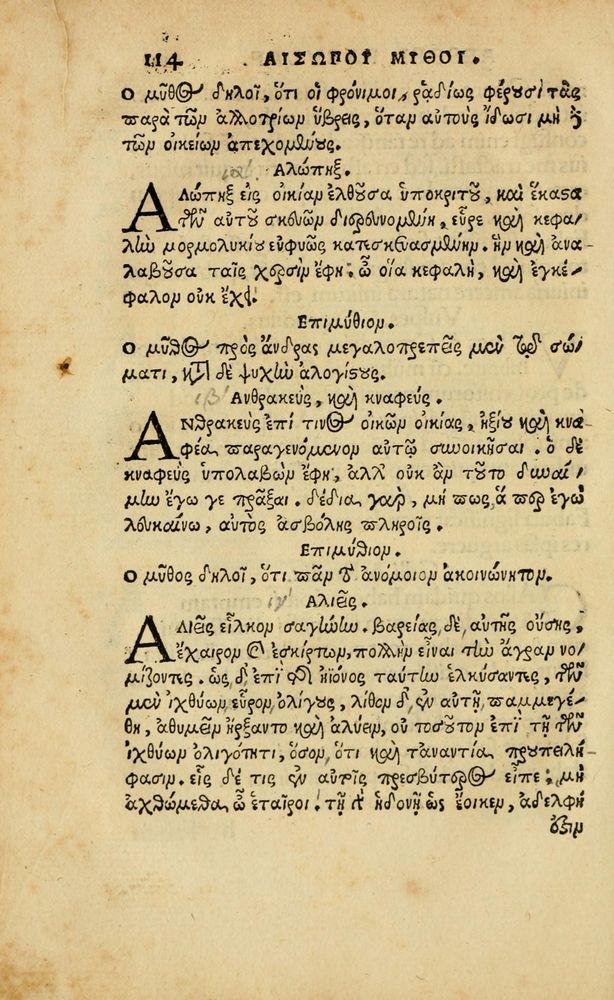 114 ΑΙΣΩΠΟΥ ΜΥΘΟΙ.
Ο μῦθος δηλοῖ, ὅτι οἱ φρόνιμοι ῥᾳδίως φέρουσι τὰς
παρὰ τῶν ἀλλοτρίων ὕβρεις, ὅταν αὐτοὺς ἴδωσι μὴ δὲ
τῶν οἰκείων ἀπεχομένους.
Αλώπηξ.
ΑΛώπηξ εἰς οἰκίαν ἐλθοῦσα ὑποκριτοῦ, καὶ ἕκαστα
τῶν αὐτοῦ σκευῶν διερευνομένη, εὗρε καὶ κεφα/
λὴν μορμολυκίου εὐφυῶς κατεσκευασμένην. ἣν καὶ ἀνα/
λαβοῦσα ταῖς χερσὶν ἔφη. ὦ οἵα κεφαλὴ, καὶ ἐγκέ/
φαλον οὐκ ἔχει.
Επιμύθιον.
Ο μῦθος πρὸς ἄνδρας μεγαλοπρεπεῖς μὲν τῷ σώ/
ματι, κατὰ δὲ ψυχὴν ἀλογίστους.
Ανθρακεὺς, καὶ κναφεύς.
ΑΝθρακεὺς ἐπί τινος οἰκῶν οἰκίας, ἠξίου καὶ κνα/
φέα παραγενόμενον αὐτῷ συνοικῆσαι. ὁ δὲ
κναφεὺς ὑπολαβὼν ἔφη, ἀλλ' οὐκ ἂν τοῦτο δυναί/
μην ἔγω γε πρᾶξαι. δέδια γὰρ, μή πως, ἅ περ ἐγὼ
λευκαίνω, αὐτὸς ἀσβόλης πληροῖς.
Επιμύθιον.
Ο μῦθος δηλοῖ, ὅτι πᾶν τὸ ἀνόμοιον ἀκοινώνητον.
Αλιεῖς.
ΑΛιεῖς εἷλκον σαγήνην. βαρείας δὲ, αὐτῆς οὔσης,
ἔχαιρον καὶ ἐσκίρτων, πολλὴν εἶναι τὴν ἄγραν νο/
μίζοντες. ὡς δ' ἐπὶ τῆς ἠϊόνος ταύτην ἑλκύσαντες, τῶν
μὲν ἰχθύων εὗρον ὀλίγους, λίθον δ' ἐν αὐτῇ παμμεγέ/
θη, ἀθυμεῖν ἤρξαντο καὶ ἀλύειν, οὐ τοσοῦτον ἐπὶ τῇ τῶν
ἰχθύων ὀλιγότητι, ὅσον, ὅτι καὶ τἀναντία προυπειλή
φασιν. εἷς δέ τις ἐν αὐτοῖς πρεσβύτερος εἶπε. μὴ
ἀχθώμεθα ὦ ἑταῖροι. τῇ γὰρ ἡδονῇ ὡς ἔοικεν, ἀδελφή
ἐστιν